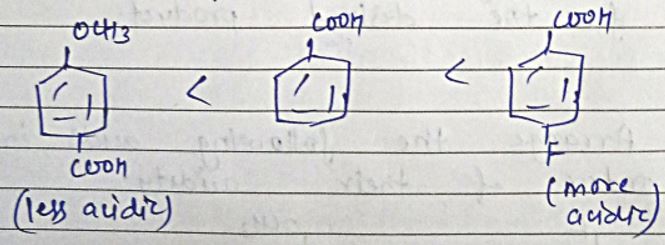 OCH3 < COOH < COOH
COOH F
(less acidic) (more
acidic)